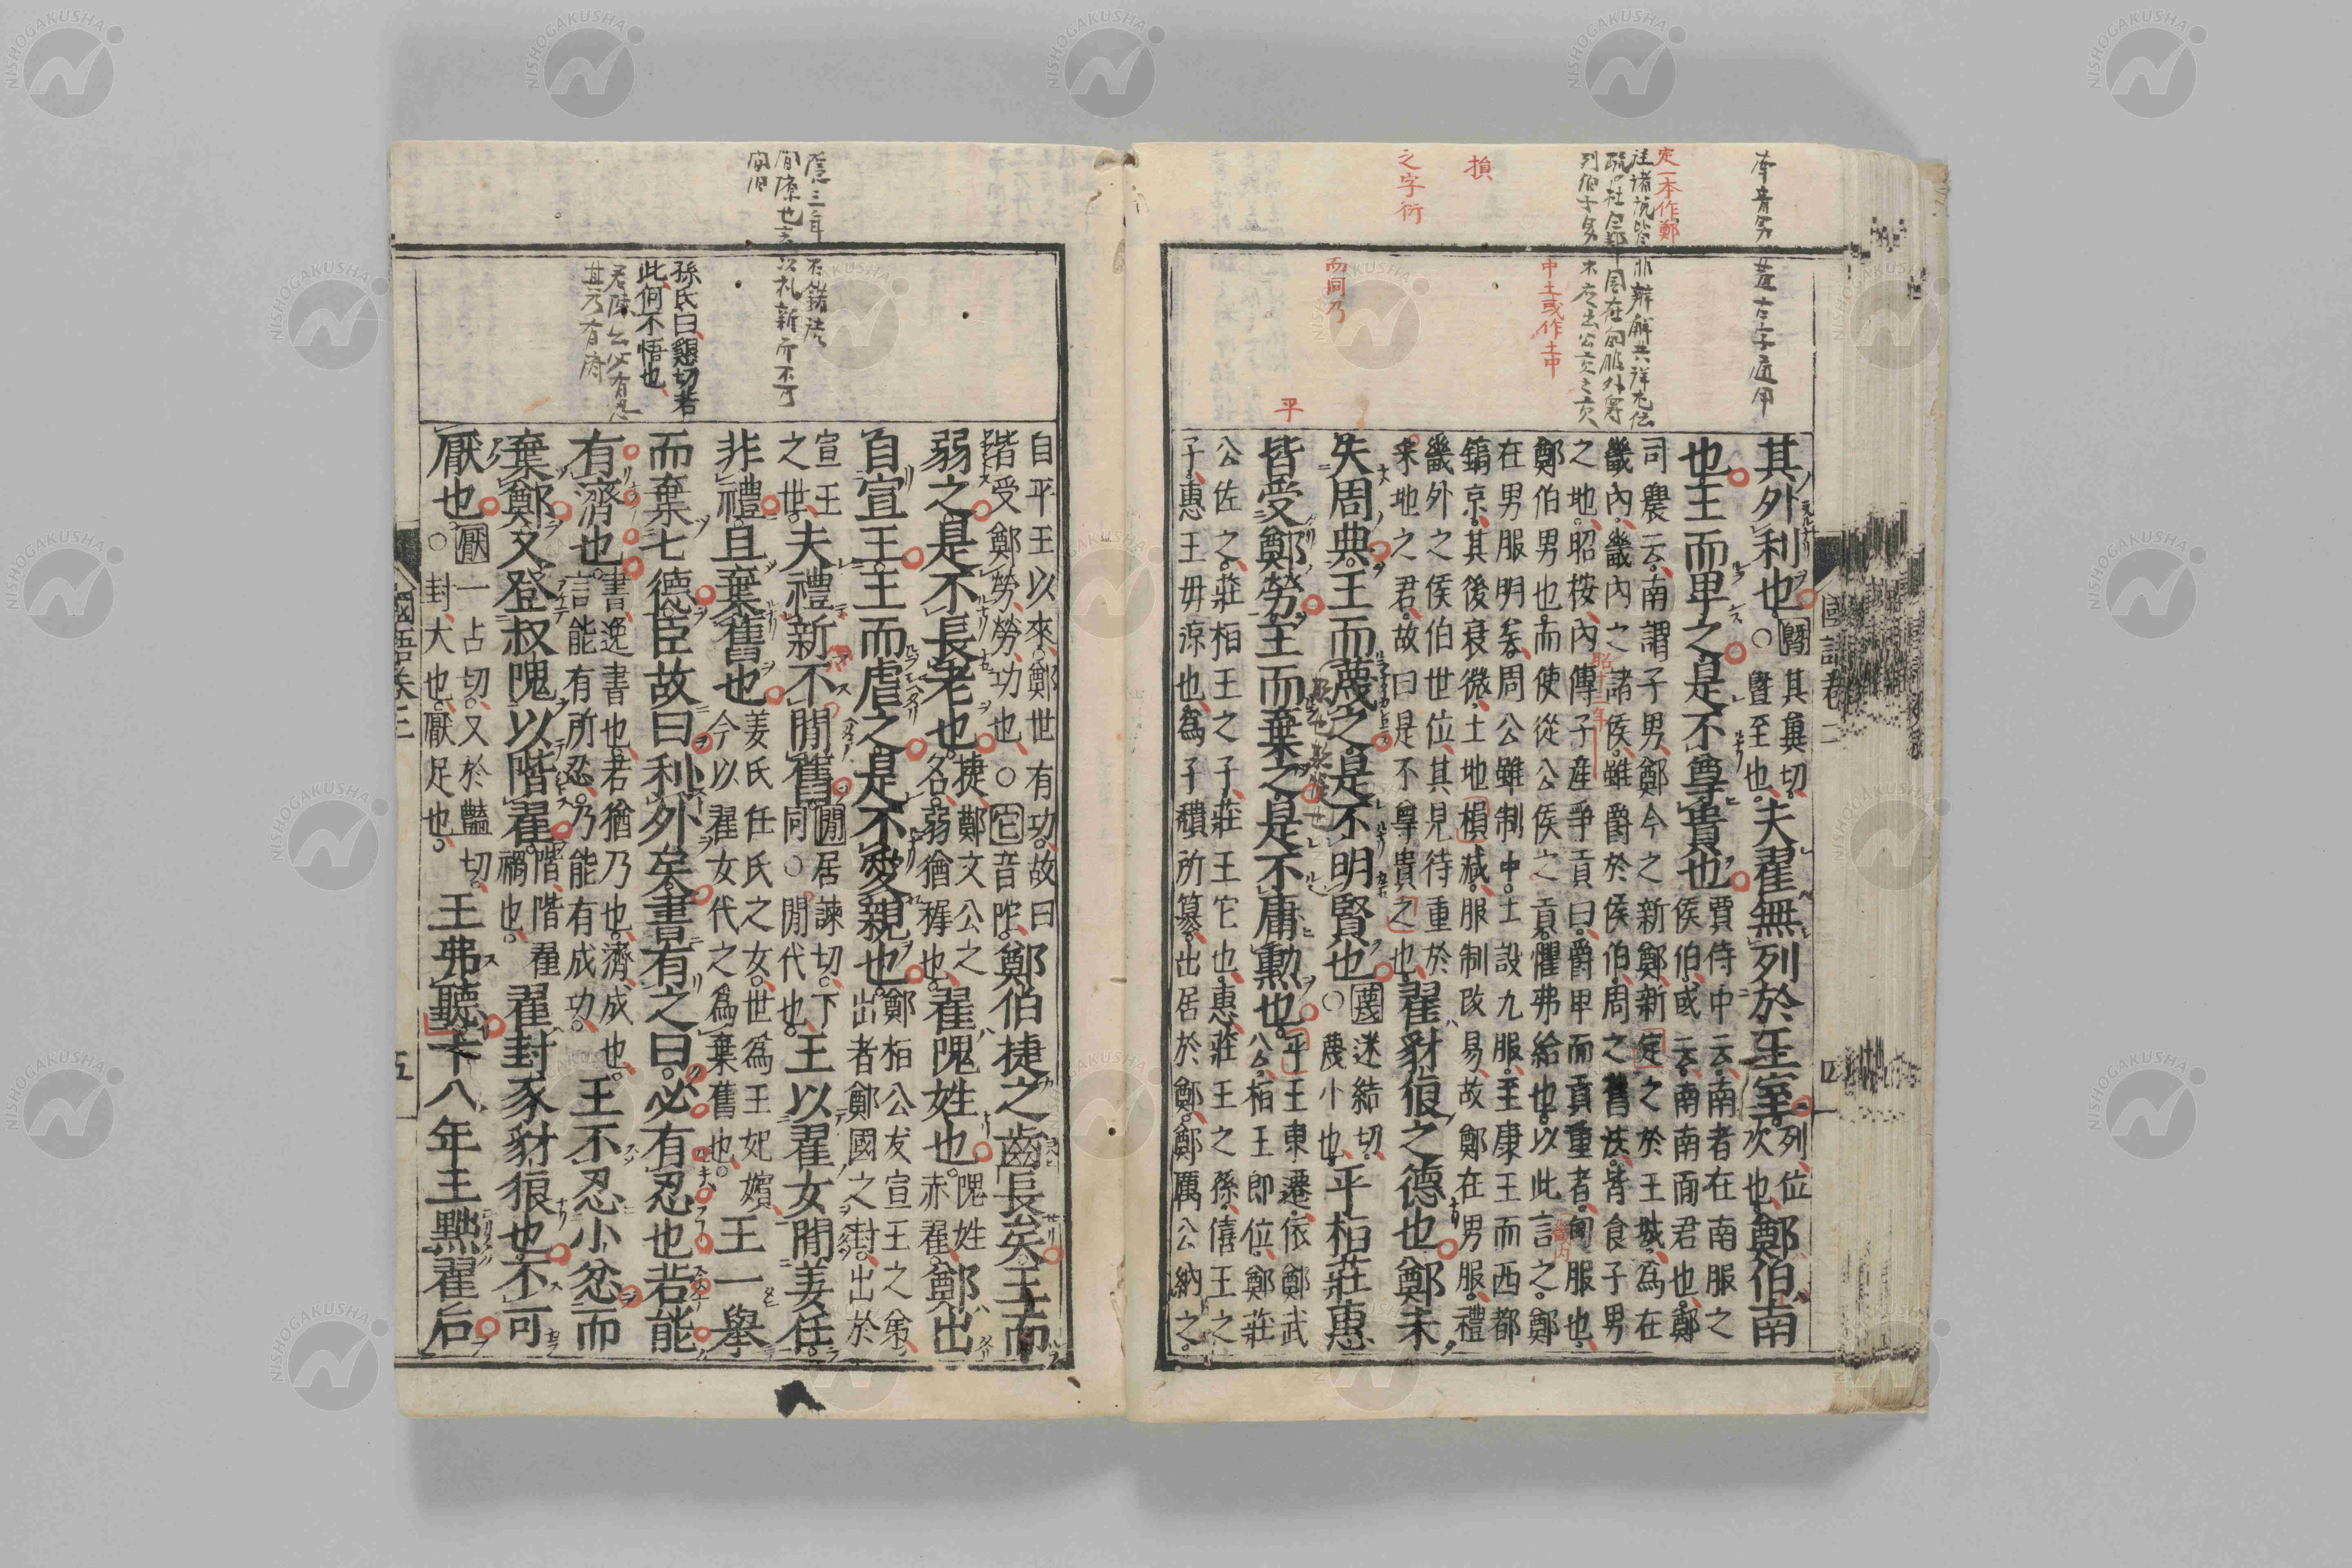 其外利也。○曁其冀切。曁至也。夫翟無列於王室。列位次也。鄭伯南
也。王而卑之是不尊貴也。賈侍中云南者在南服之侯伯。或云南南面君也。鄭
司農云。南謂子男。鄭今之新鄭。新定之於王城。爲在
畿內。畿內之諸侯。雖爵於侯伯。周之舊法。皆食子男
之地。昭按。內傳子產爭貢曰。爵卑而貢重者。甸服也。
鄭伯男也。而使從公侯之貢。懼弗給也。以此言之。鄭
在男服明矣。周公雖制中土。設九服。至康王而西都
鎬京。其後衰微。土地損減。服制改易。故鄭在男服。禮
畿外之侯伯世位。其見待重於
采地之君。故曰是不尊貴之也。翟豺狼之德也。鄭未
失周典。王而蔑之。是不明賢也。○蔑迷結切。蔑小也。平桓莊惠
皆受鄭勞。王而棄之。是不庸勳也。平王東遷。依鄭武公。桓王即位。鄭莊
公佐之。莊桓王之子。莊王佗也。惠莊王之孫。僖王之
子。惠王毋涼也。爲子穨所篡。出居於鄭。鄭厲公納之。
自平王以來。鄭世有功。故曰
皆受鄭勞。勞功也。○佗音陀。鄭伯捷之齒長矣。王而
弱之。是不長老也。捷鄭文公之名。弱猶穉也。翟隗姓也。隗姓赤翟。鄭出
自宣王。王而虐之。是不愛親也。鄭桓公友宣王之弟。出者鄭國之封。出於
宣王之世。夫禮新不閒舊。閒居諫切。下同。○閒代也。王以翟女閒姜任。
非禮。且棄舊也。姜氏任氏之女。世爲王妃嬪。今以翟女代之。爲棄舊也。王一舉
而棄七德。臣故曰利外矣。書有之曰。必有忍也。若能
有濟也。書逸書也。若猶乃也。濟成也。言能有所忍。乃能有成功。王不忍小忿。而
棄鄭。又登叔隗以階翟。階階翟禍也。翟封豕豺狼也。不可
厭也。○厭一占切。又於豔切。封大也。厭足也。王弗聽。十八年王黜翟后。
定一本作鄭
損
之字衍
中土或作土中
而同乃
平
昭十三年
畿內
孫氏曰懇切若
此何不悟也
國語卷二